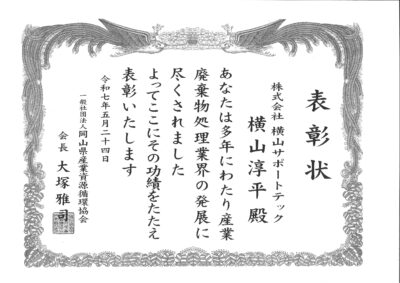 表彰状
株式会社 横山サポートテック
横山淳平 殿
あなたは多年にわたり産業
廃棄物処理業界の発展に
尽くされました
よってここにその功績をたたえ
表彰いたします
令和七年五月二十四日
一般社団法人岡山県産業資源循環協会
会長 大塚雅司